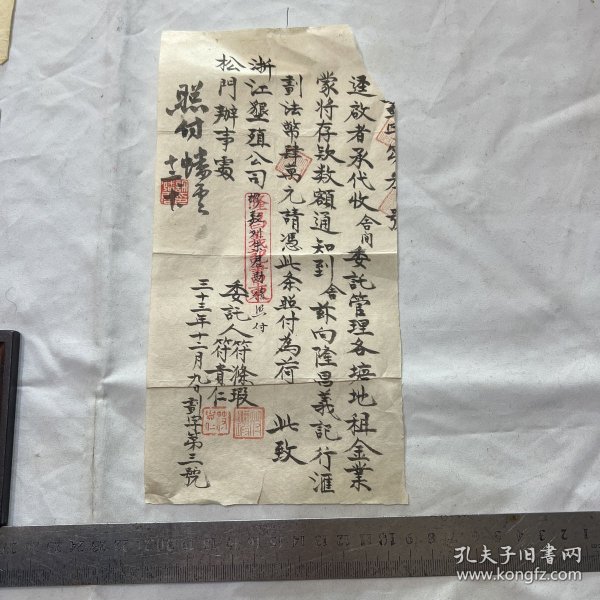 逕啟者承代收合同委託管理各塘地租金業
蒙將存欵数額通知到合玆向隆昌義記行滙
劃法幣肆萬元請憑此条照付為荷 此致
浙江墾殖公司
松門辦事處
委託人符滌瑕
符貴仁
三十三年十二月九日劃字第三號
照付
十二 十
孔夫子旧书网
www.kongfz.com